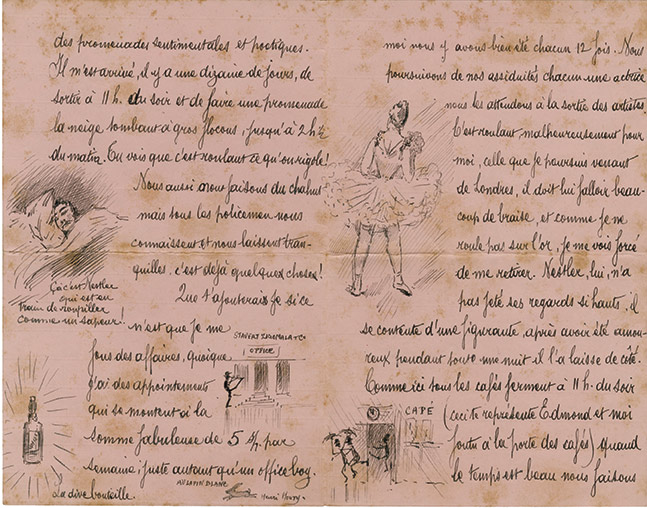 des promenades sentimentales et poetiques.
Il m'est arrivé, il y a une dizaine de jours, de
sortir à 11 h. du soir et de faire une promenade
la neige tombant à gros flocons, jusqu'à 2 h ½
du matin. Tu vois que c'est roulant ce qu'on rigole!
Nous aussi nous faisons du chahut
mais tous les policemen nous
connaissent et nous laissent tran-
quilles. c'est déjà quelque chose!
Ça c'est Nestler
qui est en
train de roupiller
comme un sapeur!
Que t'ajouterais je si ce
n'est que je me
STAVERT ZIGOMALA & Co
OFFICE
fous des affaires, quoique
j'ai des appointements
qui se montent à la
somme fabuleuse de 5 s/. par
semaine; juste autant qu'un office boy.
La dive bouteille.
AU LAPIN BLANC
Henri
moi nous y avons bien été chacun 12 fois. Nous
poursuivons de nos assiduités chacun une actrice
nous les attendons à la sortie des artistes.
C'est roulant, malheureusement pour
moi, celle que je poursuis venant
de Londres, il doit lui falloir beau-
coup de braise, et comme je ne
roule pas sur l'or, je me vois forcé
de me retirer. Nestler, lui, n'a
pas jeté ses regards si hauts, il
se contente d'une figurante, après avoir été amou-
reux pendant toute une nuit il l'a laissé de côté.
Comme ici tous les cafés ferment à 11 h. du soir
CAFÉ
(ceci te représente Edmond et moi
foutu à la porte des cafés) quand
le temps est beau nous faisons